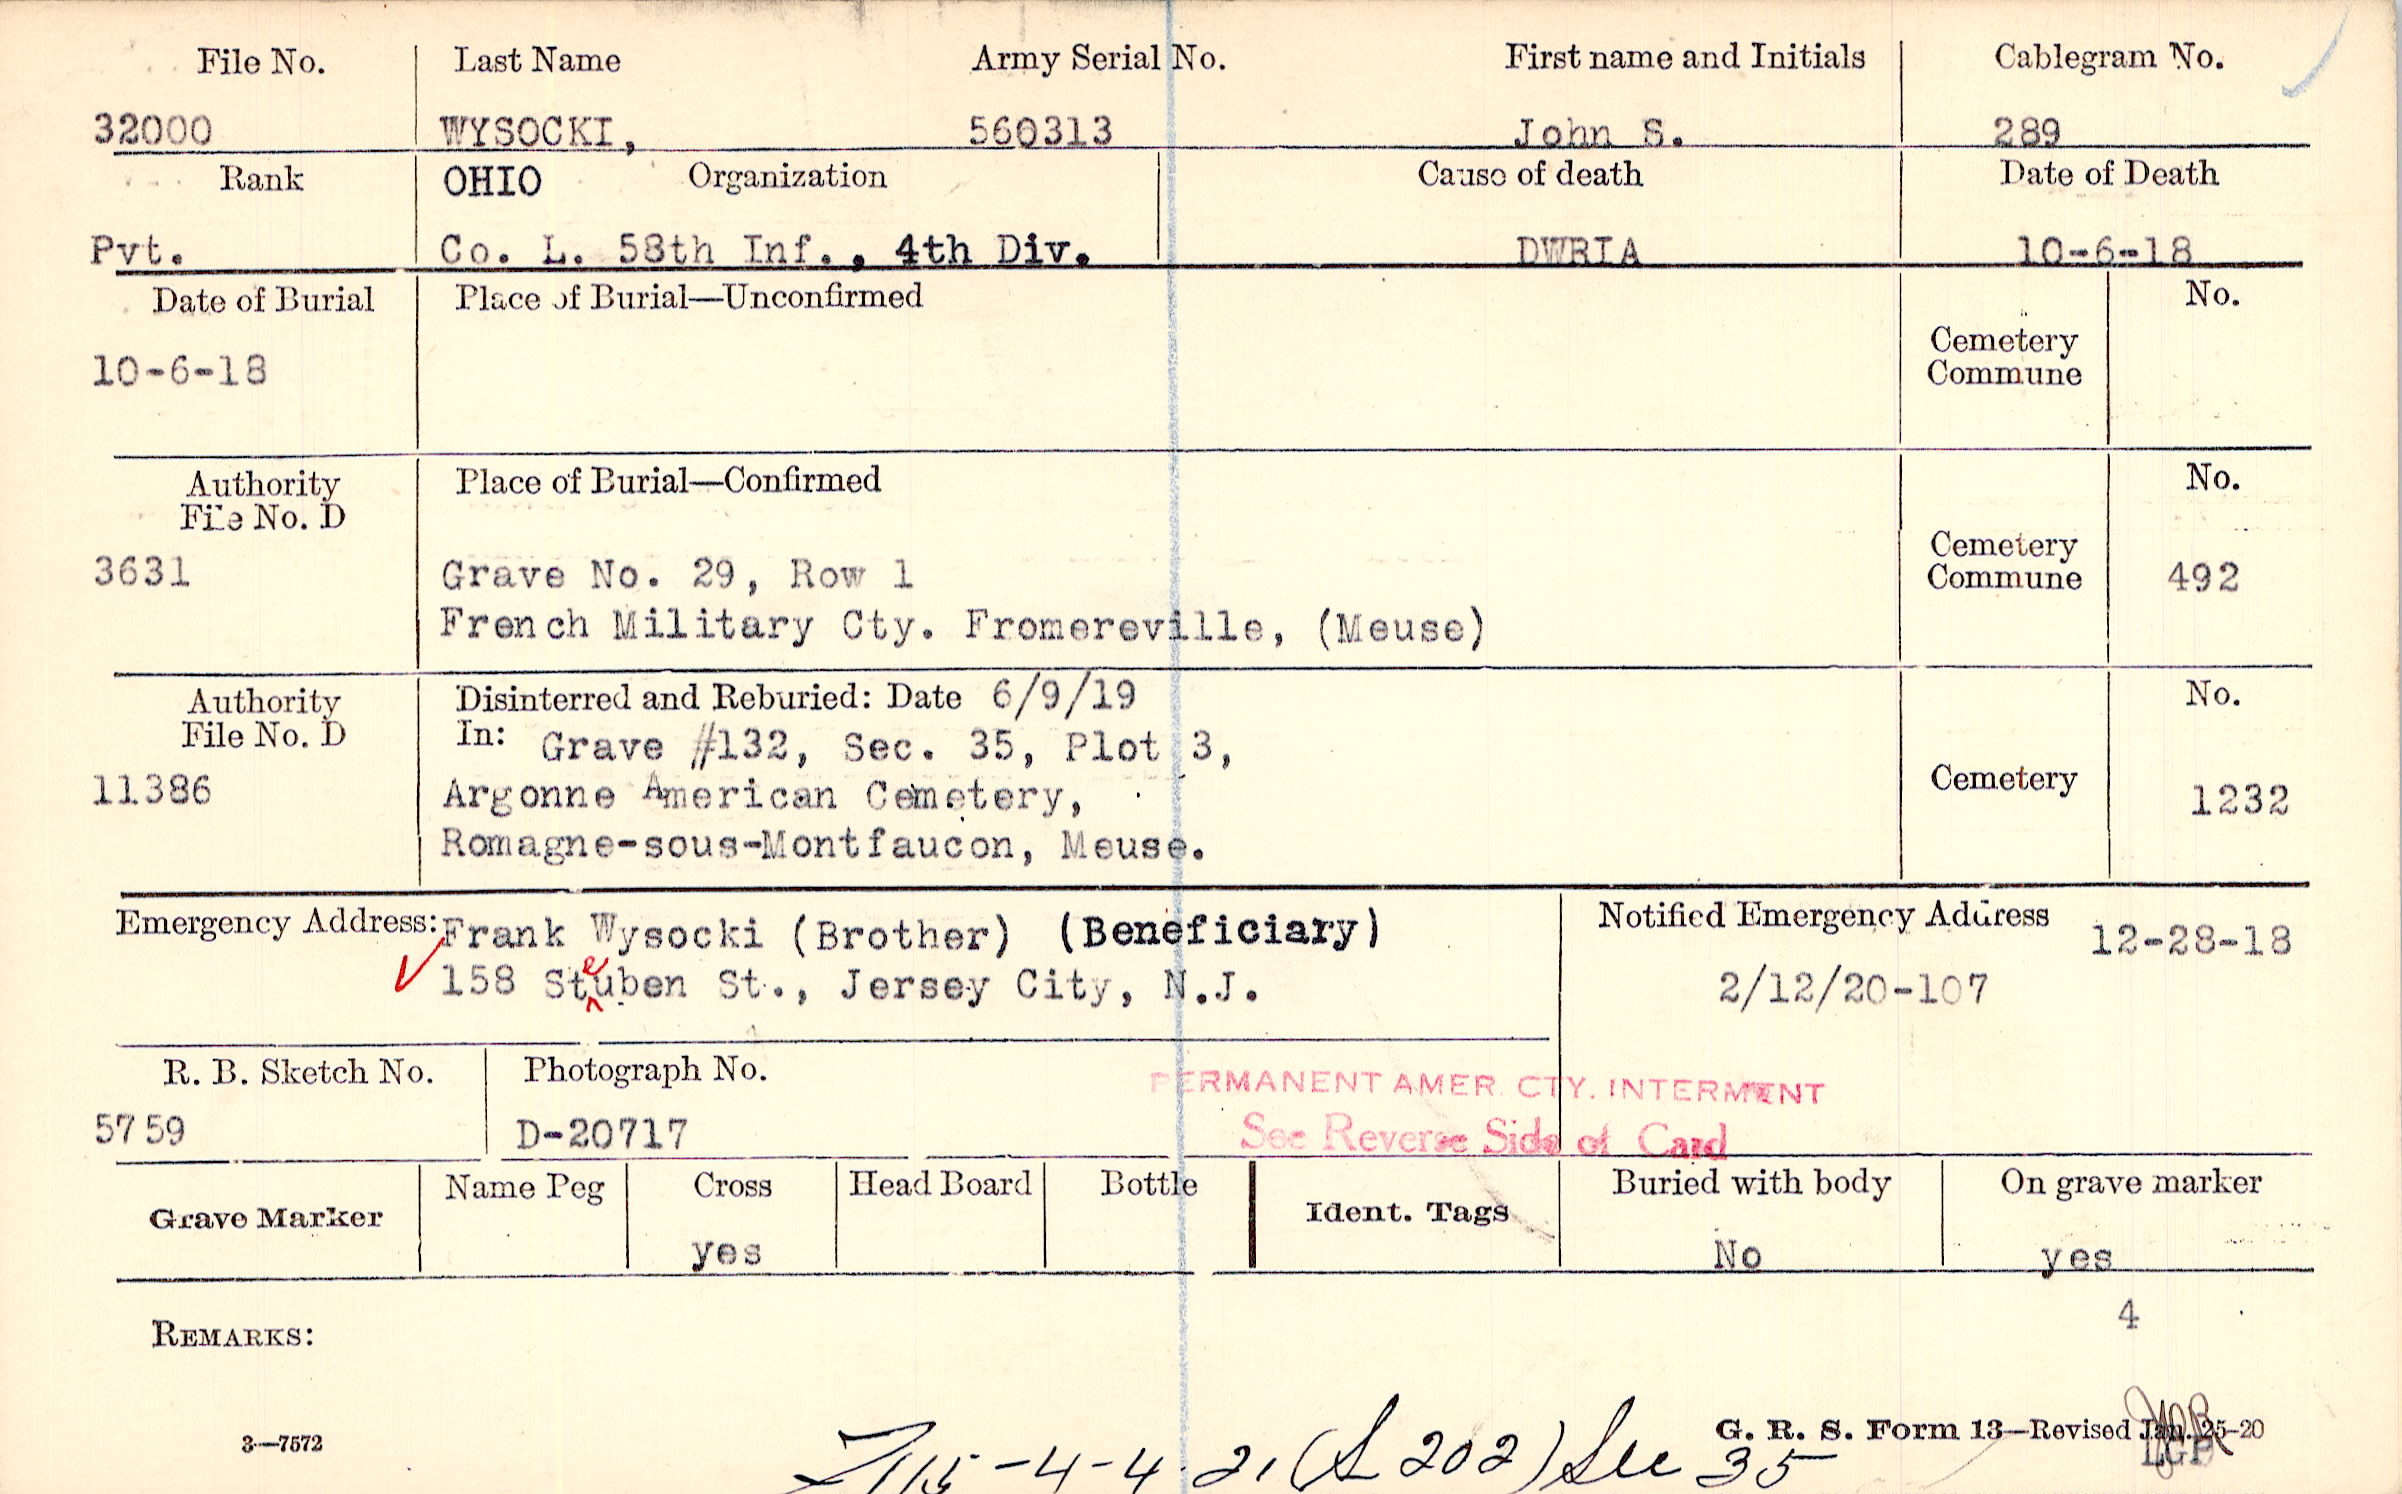 File No. Last Name Army Serial No. First name and Initials Cablegram No.
32000 WYSOCKI, 560313 John S. 289
Rank OHIO Organization Cause of death Date of Death
Pvt. Co. L. 58th Inf., 4th Div. DWRIA 10-6-18
Date of Burial Place of Burial—Unconfirmed No.
Cemetery
Commune
10-6-18
Authority Place of Burial—Confirmed No.
File No. D
Cemetery
3631 Grave No. 29, Row 1 Commune 492
French Military Cty. Fromereville, (Meuse)
Authority Disinterred and Reburied: Date 6/9/19 No.
File No. D In: Grave #132, Sec. 35, Plot 3,
11386 Argonne American Cemetery, Cemetery 1232
Romagne-sous-Montfaucon, Meuse.
Emergency Address: Frank Wysocki (Brother) (Beneficiary) Notified Emergency Address 12-28-18
158 Steuben St., Jersey City, N.J. 2/12/20-107
R. B. Sketch No. Photograph No.
PERMANENT AMER. CTY. INTERMENT
5759 D-20717 See Reverse Side of Card
Grave Marker Name Peg Cross Head Board Bottle Ident. Tags Buried with body On grave marker
yes No yes
4
REMARKS:
3—7572 G. R. S. Form 13—Revised Jan. 25-20
LGP
-4-4.21 (S 202) Sec 35